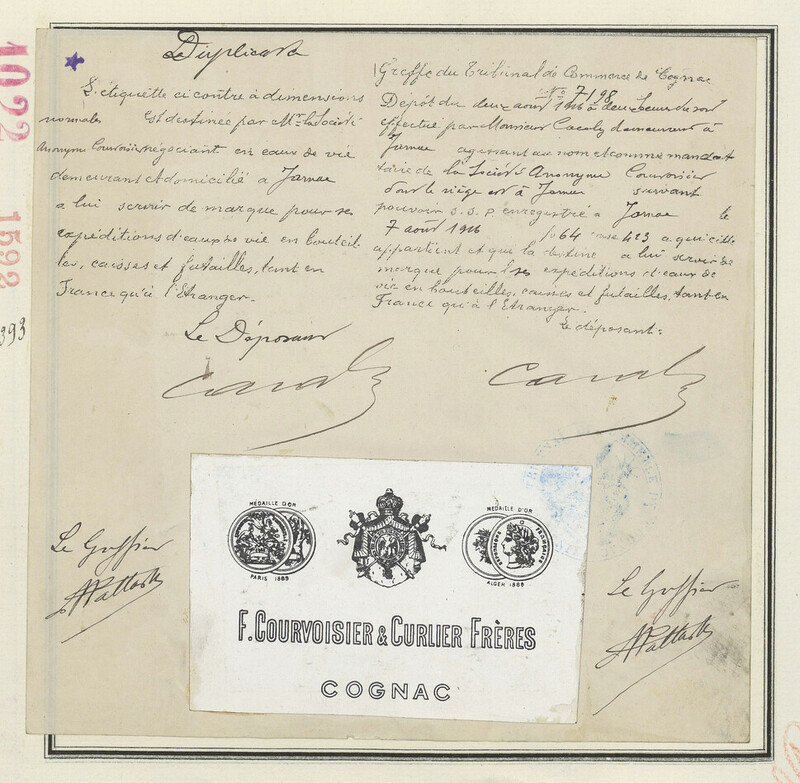 1022
1592
393
Duplicata
L'étiquette ci contre à dimensions
normales est destinée par Mr la Société
Anonyme Courvoisier négociant en eaux de vie
demeurant et domicilié à Jarnac
a lui servir de marque pour ses
expéditions d'eaux de vie en bouteil-
les, caisses et futailles, tant en
France qu'à l'Etranger.
Le Déposant
Greffe du Tribunal de Commerce de Cognac
No 7198
Dépôt du deux août 1916 à deux heures du soir
effectué par Monsieur demeurant à
Jarnac agissant au nom et comme manda
taire de la Société Anonyme Courvoisier
dont le siège est à Jarnac suivant
pouvoir S.S.P enregistré à Jarnac le
7 août 1916 fo 64 case 423 a qui elle
appartient et que la destine a lui servir de
marque pour ses expéditions d'eaux de
vie en bouteilles, caisses et futailles, tant en
France qu'à l'Etranger.
Le déposant:
Le Greffier
Le Greffier
MÉDAILLE D'OR
PARIS 1889
MÉDAILLE D'OR
ALGER 1868
F. COURVOISIER & CURLIER FRÈRES
COGNAC